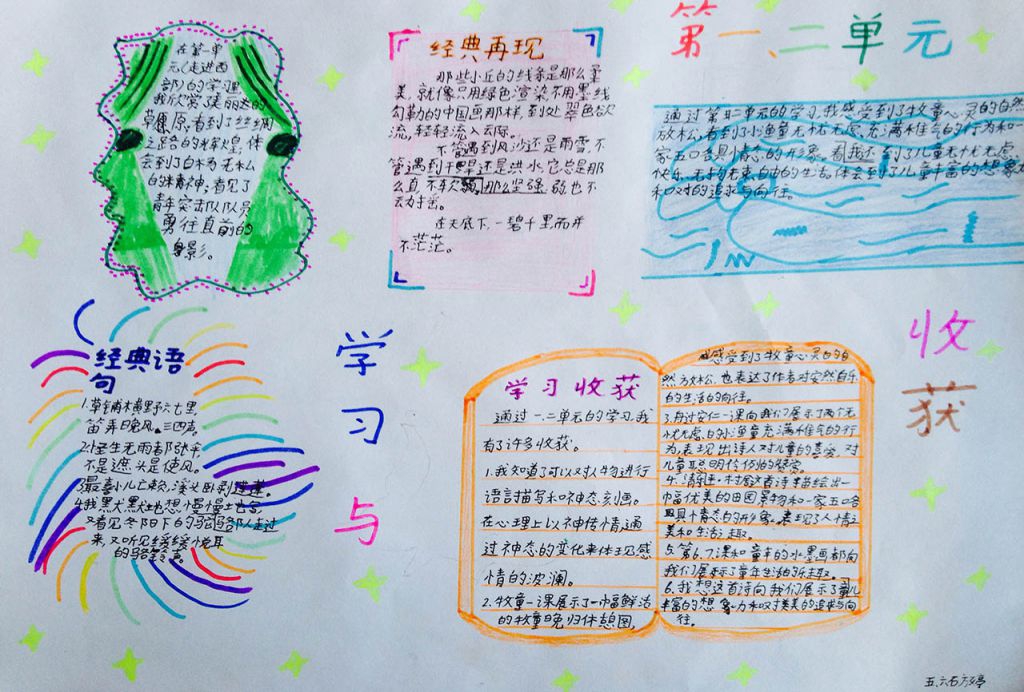 第一、二单元
在第一单
元(走进西
部)的学习里
我欣赏了美丽的
草原,看到了丝绸
之路的辉煌,体
会到了白杨无私
的精神;看见了
青年突击队队员
勇往直前的
身影。
经典再现
那些小丘的线条是那么柔
美,就像只用绿色渲染不用墨线
勾勒的中国画那样,到处翠色欲
流,轻轻流入云际。
不管遇到风沙还是雨雪,不
管遇到干旱还是洪水,它总是那
么直,那么坚强,
在天底下,一碧千里,而并
不茫茫。
通过第二单元的学习,我感受到了牧童心灵的自然
放松,看到了小渔童无忧无虑、充满稚气的行为和一
家五口各具情态的形象。看我还到了儿童无忧无虑
快乐、无拘无束、自由的生活,体会到了儿童丰富的想象力
和对的追求与向往。
经典语
句
1.草铺横野六七里,
笛弄晚风三四声。
2.怪生无雨都张伞,
不是遮头是使风。
3.最喜小儿亡赖,溪头卧剥莲蓬。
4.我默默地想,慢慢地写。
又看见冬阳下的骆驼队走过
来,又听见缓缓悦耳
的铃声。
学
习
与
收
获
学习收获
通过一二单元的学习,我
有了许多收获。
1.我知道了可以对人物进行
语言描写和神态刻画。
在心理上以神传情,通
过神态的变化来体现感
情的波澜。
2.牧童一课展示了一幅鲜活
的牧童晚归休憩图,
感受到了牧童心灵的自
然放松,也表达了作者对安然自乐
的生活的向往。
3.舟过安仁一课向我们展示了两个无
忧无虑的小渔童充满稚气的行
为,表现出诗人对儿童的喜爱,对
儿童聪明伶俐的赞赏。
4.清平乐·村居这首诗描绘出一
幅优美的田园景物和一家五口各
具情态的形象,表现了人情之
美和生活之趣。
5.第6、7课和童年的水墨画都向
我们展示了童年生活的乐趣。
6.我想这首诗向我们展示了儿
丰富的想象力和对美的追求与向
往。
五、六